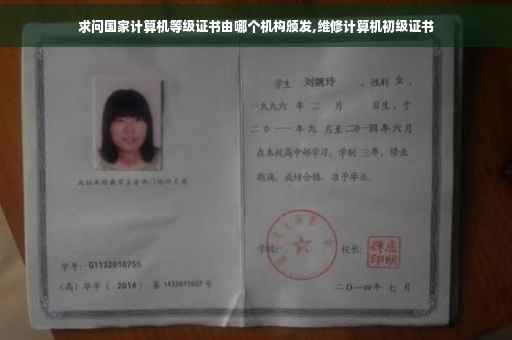 求问国家计算机等级证书由哪个机构颁发,维修计算机初级证书
学生 刘婉玲 ，性别 女 ，
一九九六 年 二 月 日生，于
二〇一一年九 月至二〇一四年六月
在本校高中部学习，学制 三年，修业
期满，成绩合格，准予毕业。
学号： G1132010755
(高) 毕字 ( 2014 ) 第 1432011037 号
学校：
校长：
二〇一四年 七 月